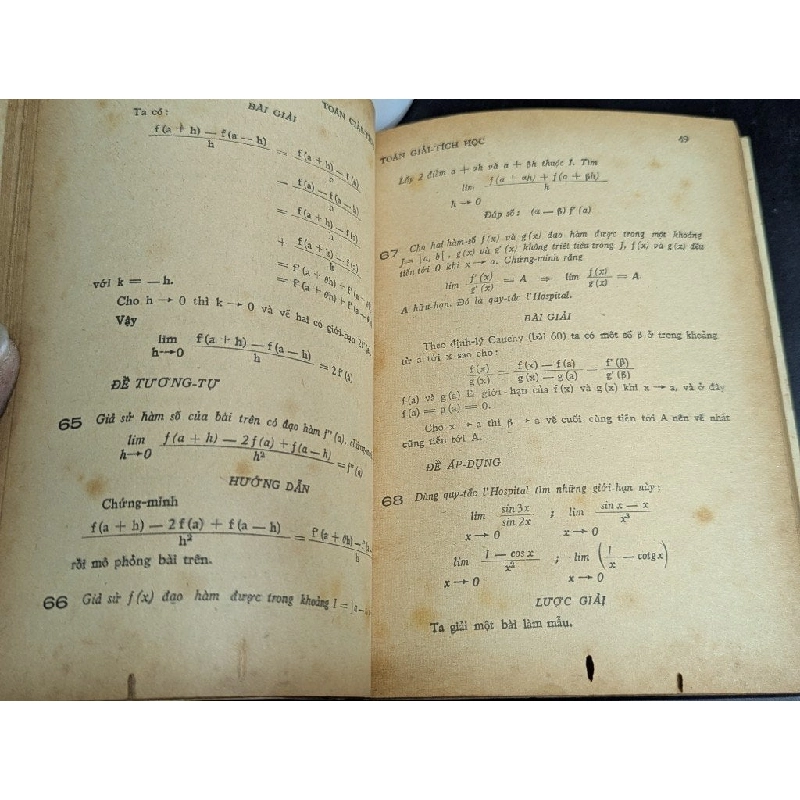 BÀI GIẢI
TOÁN GIẢI-TÍCH
Ta có :
f(a + h) — f(a — h) / h = f(a + h) — f(a) / h
— f(a) — f(a — h) / h
= f(a + h) — f(a) / h
+ f(a + k) — f(a) / k
= f'(a + θh) + f'(a
= f'(a + θh) + f'(a
với k = — h.
Cho h → 0 thì k → 0 và vế hai có giới-hạn 2f'(a).
Vậy
lim h→0 f(a + h) — f(a — h) / h = 2f'(a)
ĐỀ TƯƠNG-TỰ
65 Giả sử hàm số của bài trên có đạo hàm f''(a).
lim h→0 f(a + h) — 2f(a) + f(a — h) / h² = f''(a)
HƯỚNG DẪN
Chứng-minh
f(a + h) — 2f(a) + f(a — h) / h² = f'(a + θh) —
rồi mô phỏng bài trên.
66 Giả sử f(x) đạo hàm được trong khoảng I =
TOÁN GIẢI-TÍCH HỌC 49
Lấy 2 điểm a + αh và a + βh thuộc I. Tìm
lim h → 0 f(a + αh) + f(a + βh) / h
Đáp số : (α — β) f'(a)
67 Cho hai hàm-số f(x) và g(x) đạo hàm được trong một khoảng
J = ]a, b[, g(x) và g'(x) không triệt tiêu trong J, f(x) và g(x) đều
tiến tới 0 khi x → a. Chứng-minh rằng
lim f'(x) / g'(x) = A ⇒ lim f(x) / g(x) = A.
A hữu-hạn. Đó là quy-tắc l'Hospital.
BÀI GIẢI
Theo định-lý Cauchy (bài 60) ta có một số β ở trong khoảng
từ a tới x sao cho :
f(x) / g(x) = f(x) — f(a) / g(x) — g(a) = f'(β) / g'(β)
f(a) và g(a) là giới-hạn của f(x) và g(x) khi x → a, và ở đây
f(a) = g(a) = 0.
Cho x → a thì β → a vế cuối cùng tiến tới A nên vế nhất
cũng tiến tới A.
ĐỀ ÁP-DỤNG
68 Dùng quy-tắc l'Hospital tìm những giới-hạn này :
lim x → 0 sin 3x / sin 2x ; lim x → 0 sin x — x / x³
lim x → 0 1 — cos x / x² ; lim x → 0 (1/x — cotg x)
LƯỢC GIẢI
Ta giải một bài làm mẫu.